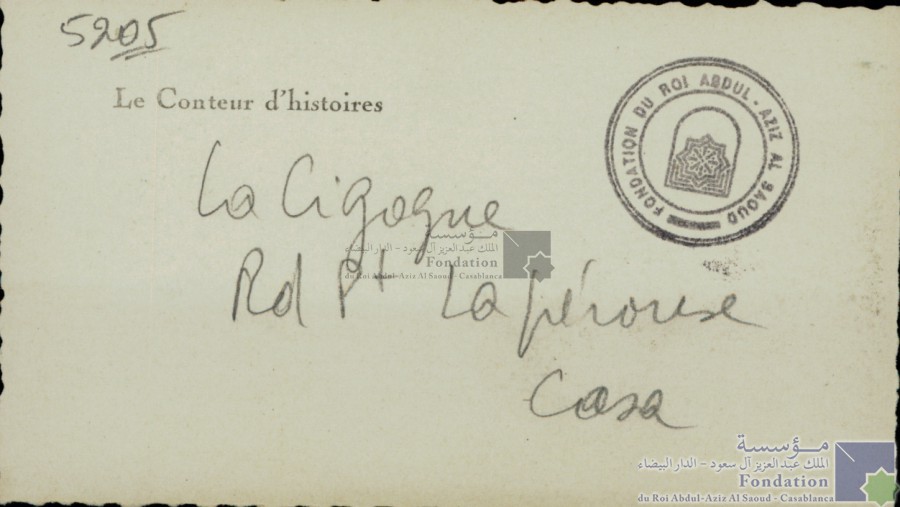 5205
Le Conteur d'histoires
FONDATION DU ROI ABDUL-AZIZ AL SAOUD
La Cigogne
مؤسسة
الملك عبد العزيز آل سعود - الدار البيضاء
Fondation
du Roi Abdul-Aziz Al Saoud - Casablanca
Rd Pt Lapérouse
Casa
مؤسسة
الملك عبد العزيز آل سعود - الدار البيضاء
Fondation
du Roi Abdul-Aziz Al Saoud - Casablanca